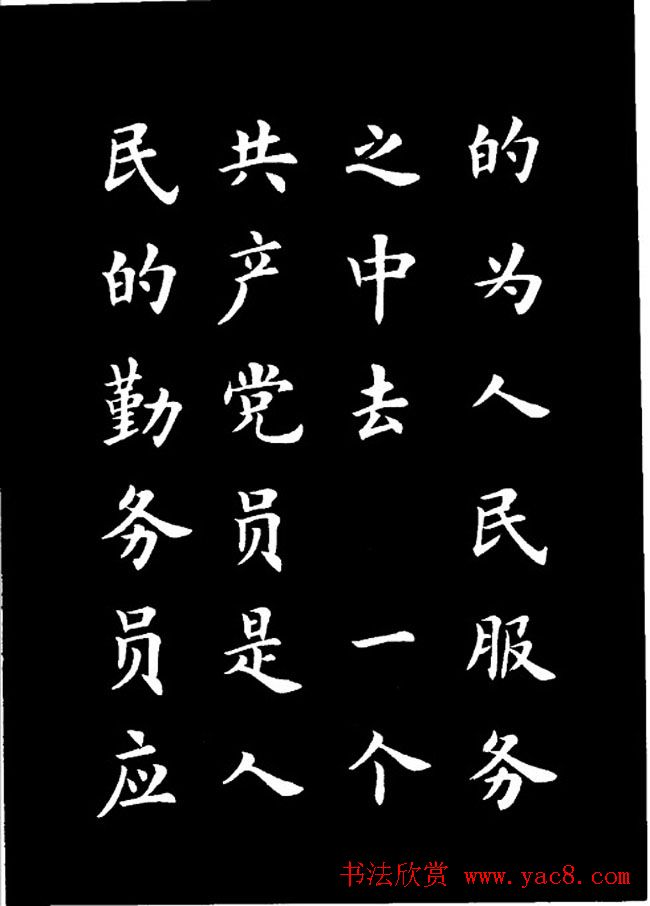 的为人民服务
之中去 一个
共产党员是人
民的勤务员应
书法欣赏 www.yac8.com